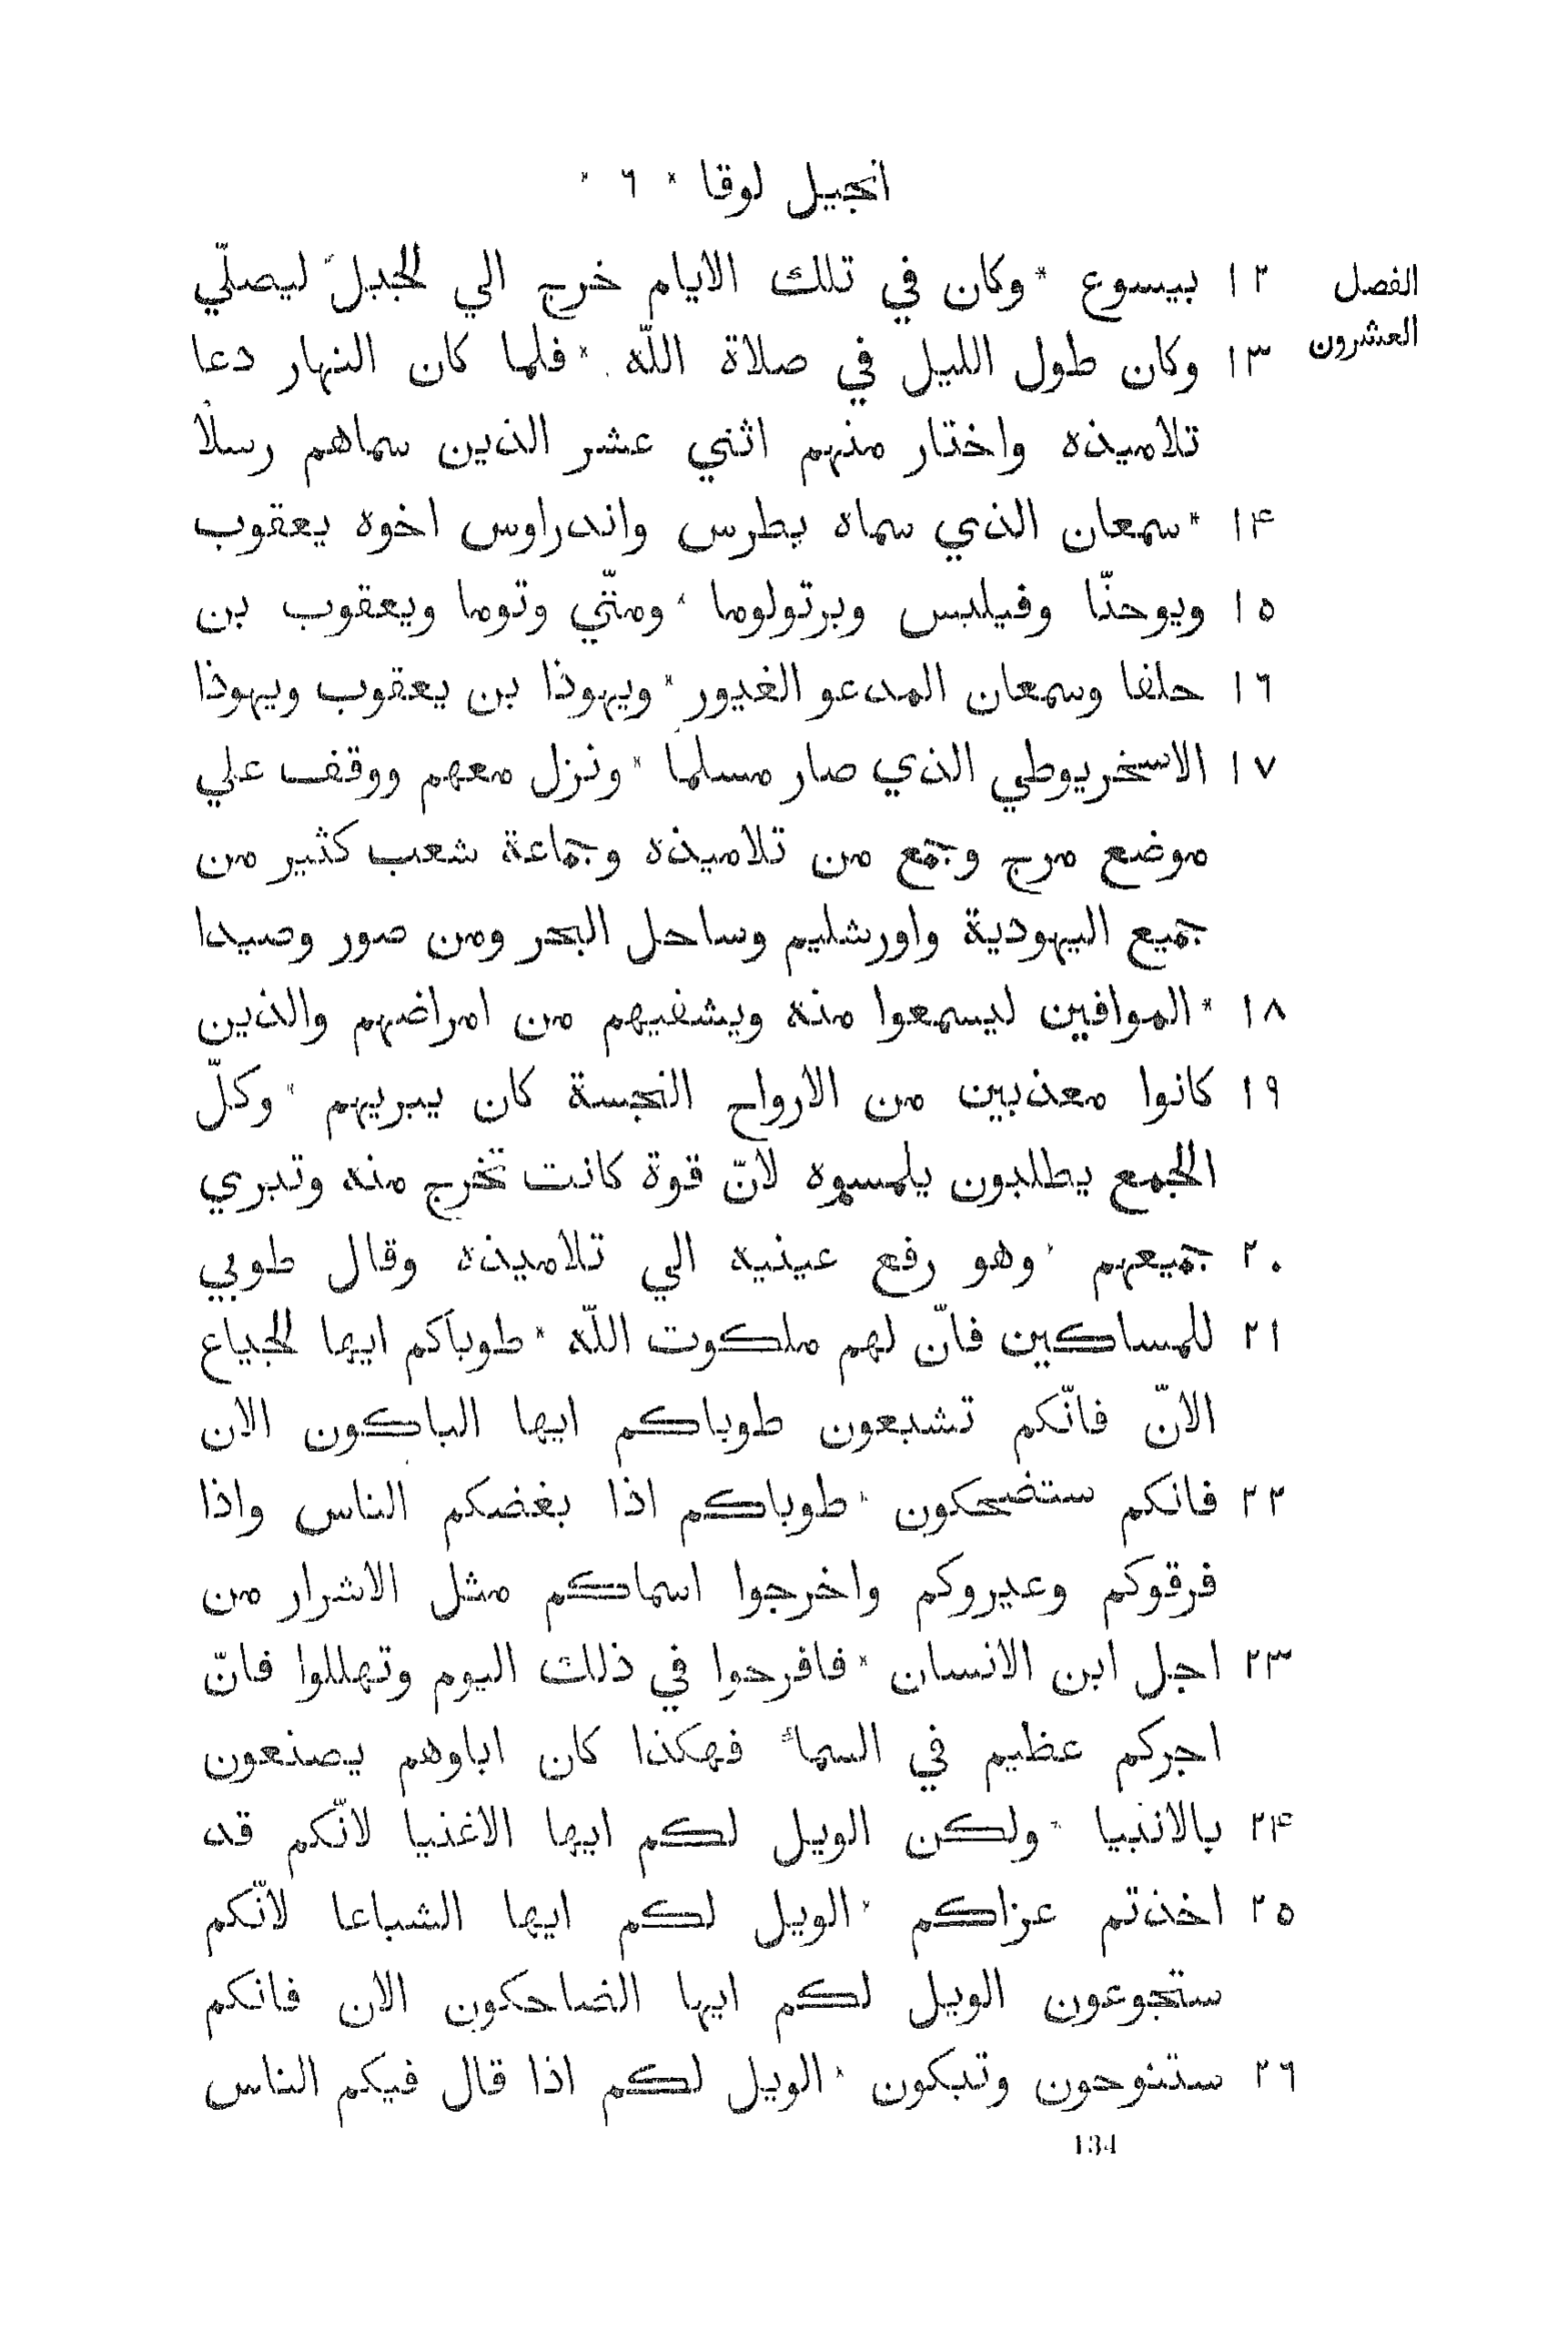 انجيل لوقا * ٦ *
الفصل ١٢ بيسوع * وكان في تلك الايام خرج الي الجبل ليصلّي
العشرون ١٣ وكان طول الليل في صلاة اللّه * فلما كان النهار دعا
تلاميذه واختار منهم اثني عشر الذين سماهم رسلًا
١۴ * سمعان الذي سماه بطرس واندراوس اخوه يعقوب
١٥ ويوحنّا وفيلبس وبرتولوما * ومتّي وتوما ويعقوب بن
١٦ حلفا وسمعان المدعو الغيور * ويهوذا بن يعقوب ويهوذا
١٧ الاسخريوطي الذي صار مسلما * ونزل معهم ووقف علي
موضع مرج وجمع من تلاميذه وجماعة شعب كثير من
جميع اليهودية واورشليم وساحل البحر ومن صور وصيدا
١٨ * الموافين ليسمعوا منه ويشفيهم من امراضهم والذين
١٩ كانوا معذبين من الارواح النجسة كان يبريهم * وكلّ
الجمع يطلبون يلمسوه لانّ قوة كانت تخرج منه وتبري
٢٠ جميعهم * وهو رفع عينيه الي تلاميذه وقال طوبي
٢١ للمساكين فانّ لهم ملكوت اللّه * طوباكم ايها الجياع
الانّ فانّكم تشبعون طوباكم ايها الباكون الان
٢٢ فانكم ستضحكون * طوباكم اذا بغضكم الناس واذا
فرقوكم وعيروكم واخرجوا اسماكم مثل الاشرار من
٢٣ اجل ابن الانسان * فافرحوا في ذلك اليوم وتهللوا فانّ
اجركم عظيم في السماً فهكذا كان اباوهم يصنعون
٢۴ بالانبيا * ولكن الويل لكم ايها الاغنيا لانّكم قد
٢٥ اخذتم عزاكم * الويل لكم ايها الشباعا لانّكم
ستجوعون الويل لكم ايها الضاحكون الان فانكم
٢٦ ستنوحون وتبكون * الويل لكم اذا قال فيكم الناس
134